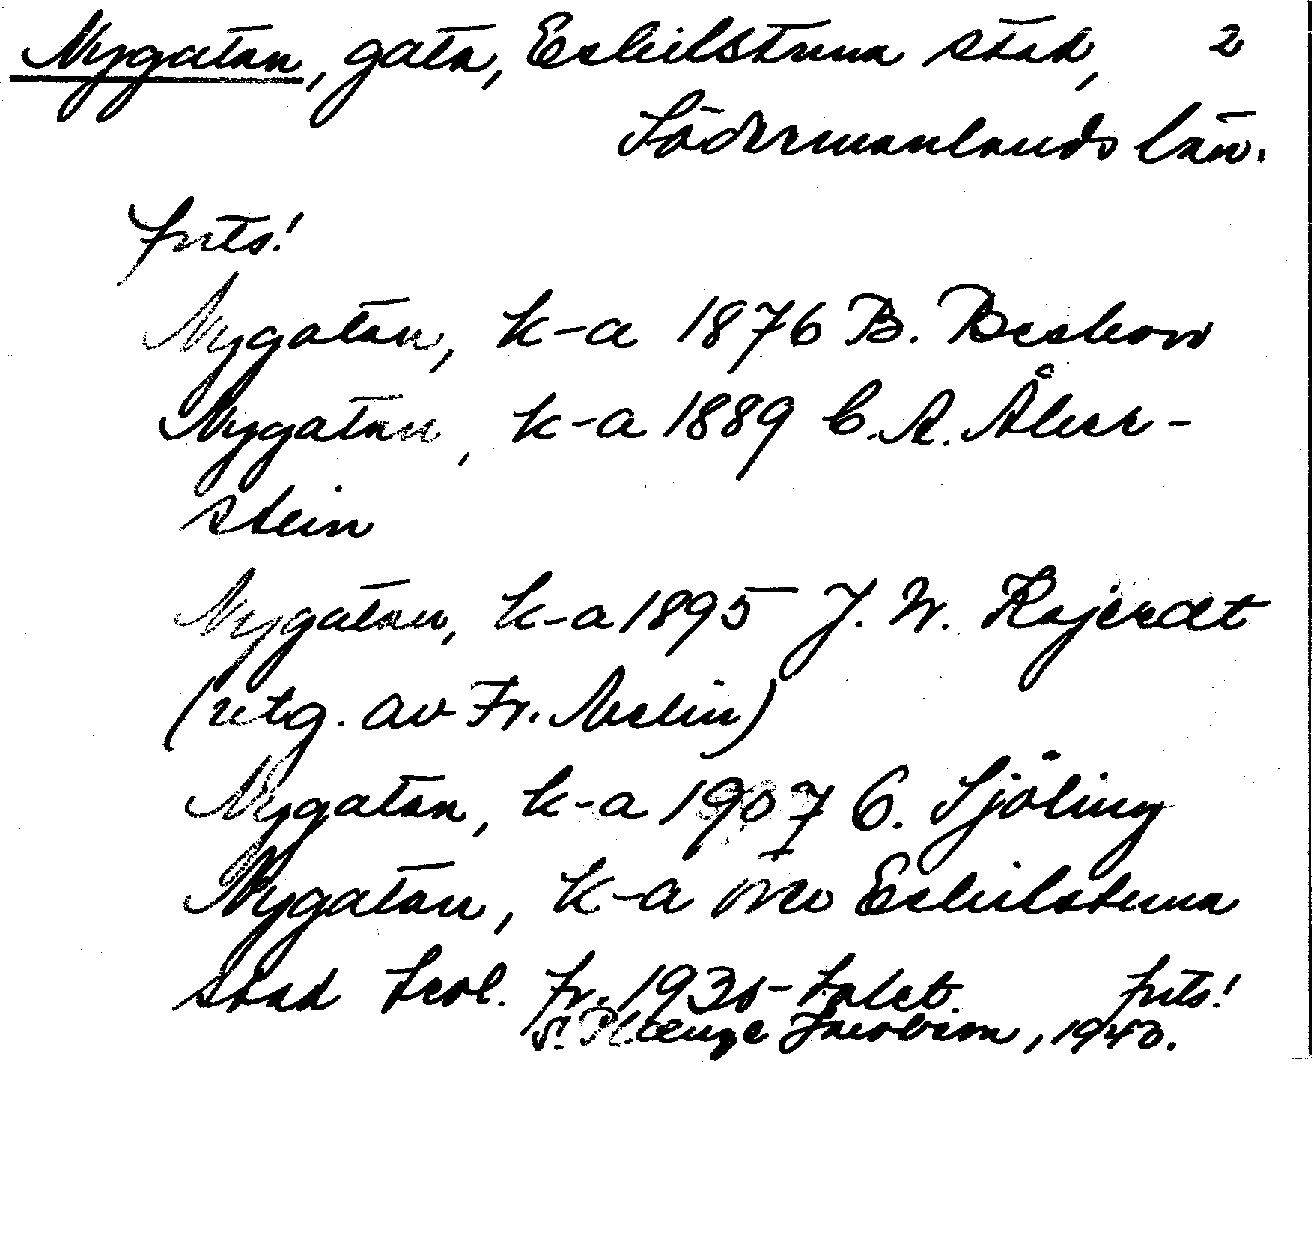 Nygatan, gata, Eskilstuna stad, 2
Södermanlands län.
forts!
Nygatan, k-a 1876 B. Beskow
Nygatan, k-a 1889 C. A. Åker-
stein
Nygatan, k-a 1895 J. W.
(utg. av Fr. Melin)
Nygatan, k-a 1907 C. Sjöling
Nygatan, k-a över Eskilstuna
stad trol. fr. 1930-talet. forts!
Jacobson, 1940.